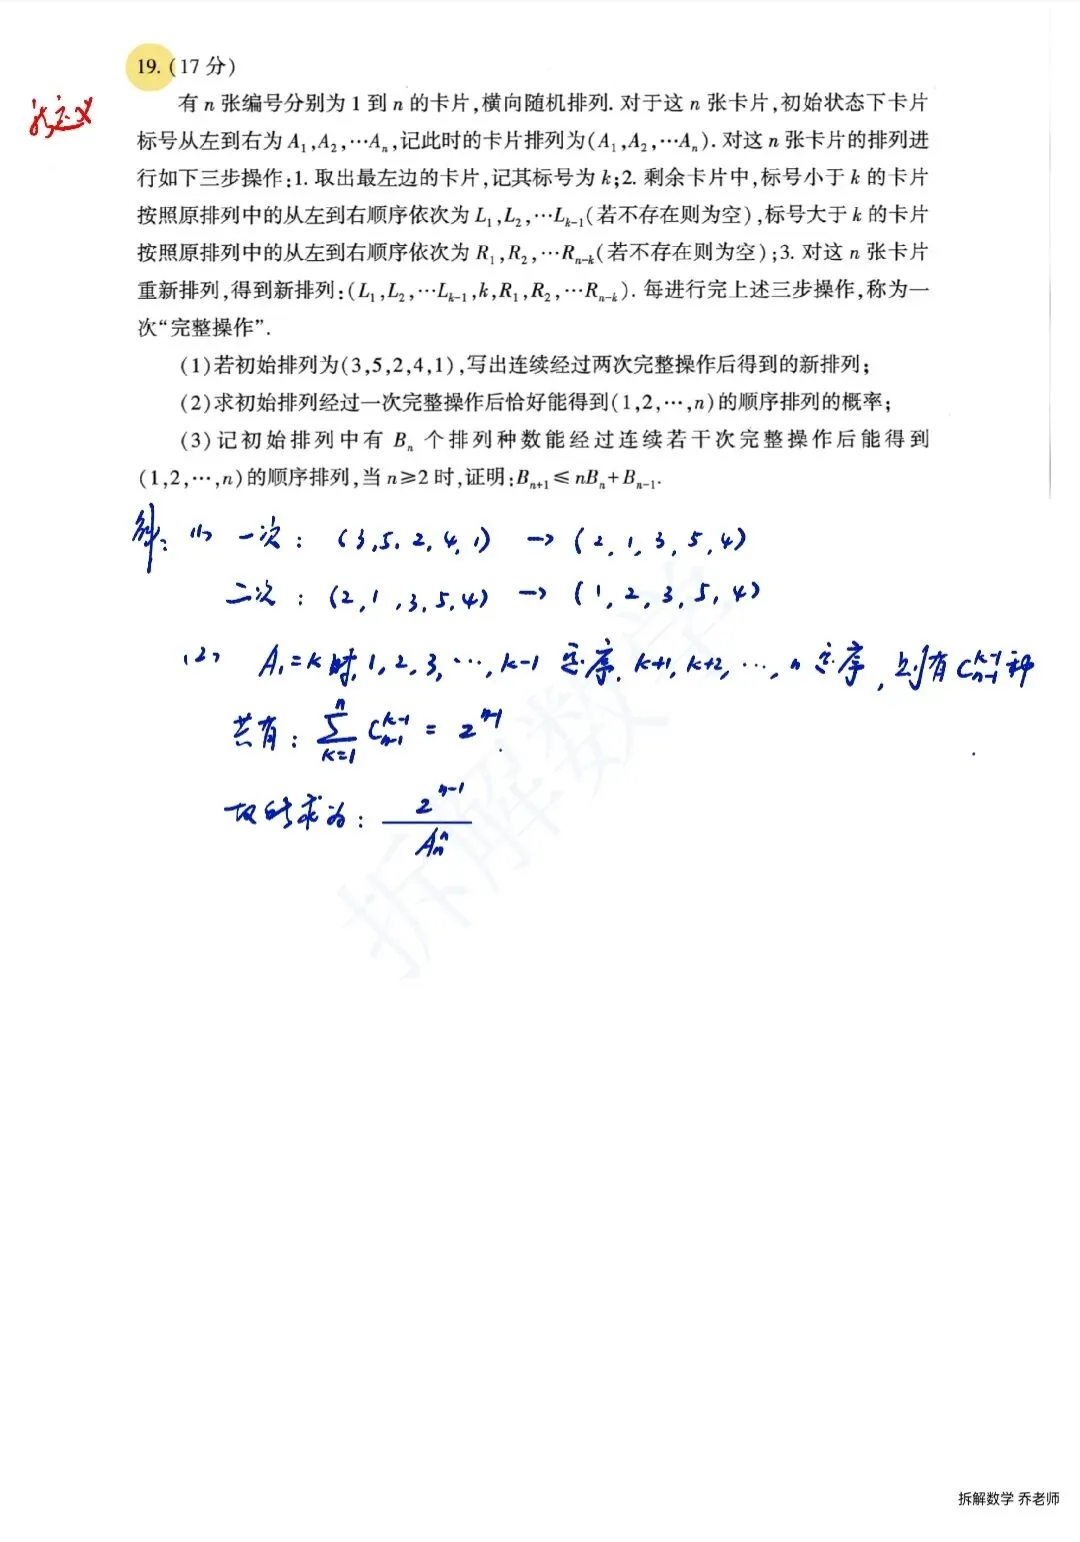 19. (17 分)
新定义
有 n 张编号分别为 1 到 n 的卡片,横向随机排列. 对于这 n 张卡片,初始状态下卡片
标号从左到右为 A₁,A₂,⋯Aₙ,记此时的卡片排列为(A₁,A₂,⋯Aₙ). 对这 n 张卡片的排列进
行如下三步操作:1. 取出最左边的卡片,记其标号为 k;2. 剩余卡片中,标号小于 k 的卡片
按照原排列中的从左到右顺序依次为 L₁,L₂,⋯Lₖ₋₁(若不存在则为空),标号大于 k 的卡片
按照原排列中的从左到右顺序依次为 R₁,R₂,⋯Rₙ₋ₖ(若不存在则为空);3. 对这 n 张卡片
重新排列,得到新排列:(L₁,L₂,⋯Lₖ₋₁,k,R₁,R₂,⋯Rₙ₋ₖ). 每进行完上述三步操作,称为一
次“完整操作”.
(1)若初始排列为(3,5,2,4,1),写出连续经过两次完整操作后得到的新排列;
(2)求初始排列经过一次完整操作后恰好能得到(1,2,⋯,n)的顺序排列的概率;
(3)记初始排列中有 Bₙ 个排列种数能经过连续若干次完整操作后能得到
(1,2,⋯,n)的顺序排列,当 n≥2 时,证明:Bₙ₊₁≤nBₙ+Bₙ₋₁.
解: (1) 一次: (3,5,2,4,1) → (2,1,3,5,4)
二次: (2,1,3,5,4) → (1,2,3,5,4)
(2) A₁=k时, 1,2,3,⋯,k-1 定序, k+1,k+2,⋯,n 定序, 则有 C_{n-1}^{k-1} 种
共有: ∑_{k=1}^{n} C_{n-1}^{k-1} = 2^{n-1}
故所求为: 2^{n-1}/A_n^n
拆解数学
拆解数学 乔老师